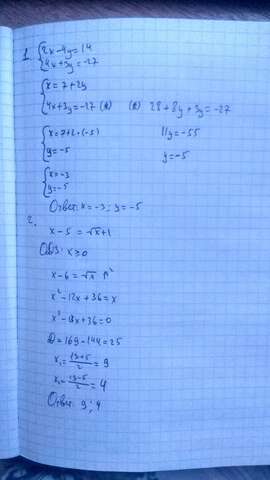 1. { 2x-4y=14
4x+3y=-27
{ x=7+2y
4x+3y=-27 (*) (*) 28+8y+3y=-27
{ x=7+2·(-5) 11y=-55
y=-5 y=-5
{ x=-3
y=-5
Ответ: x=-3; y=-5
2.
x-5=√x+1
ОДЗ: x≥0
x-6=√x ↑²
x²-12x+36=x
x²-13x+36=0
D=169-144=25
x₁=(13+5)/2=9
x₂=(13-5)/2=4
Ответ: 9; 4